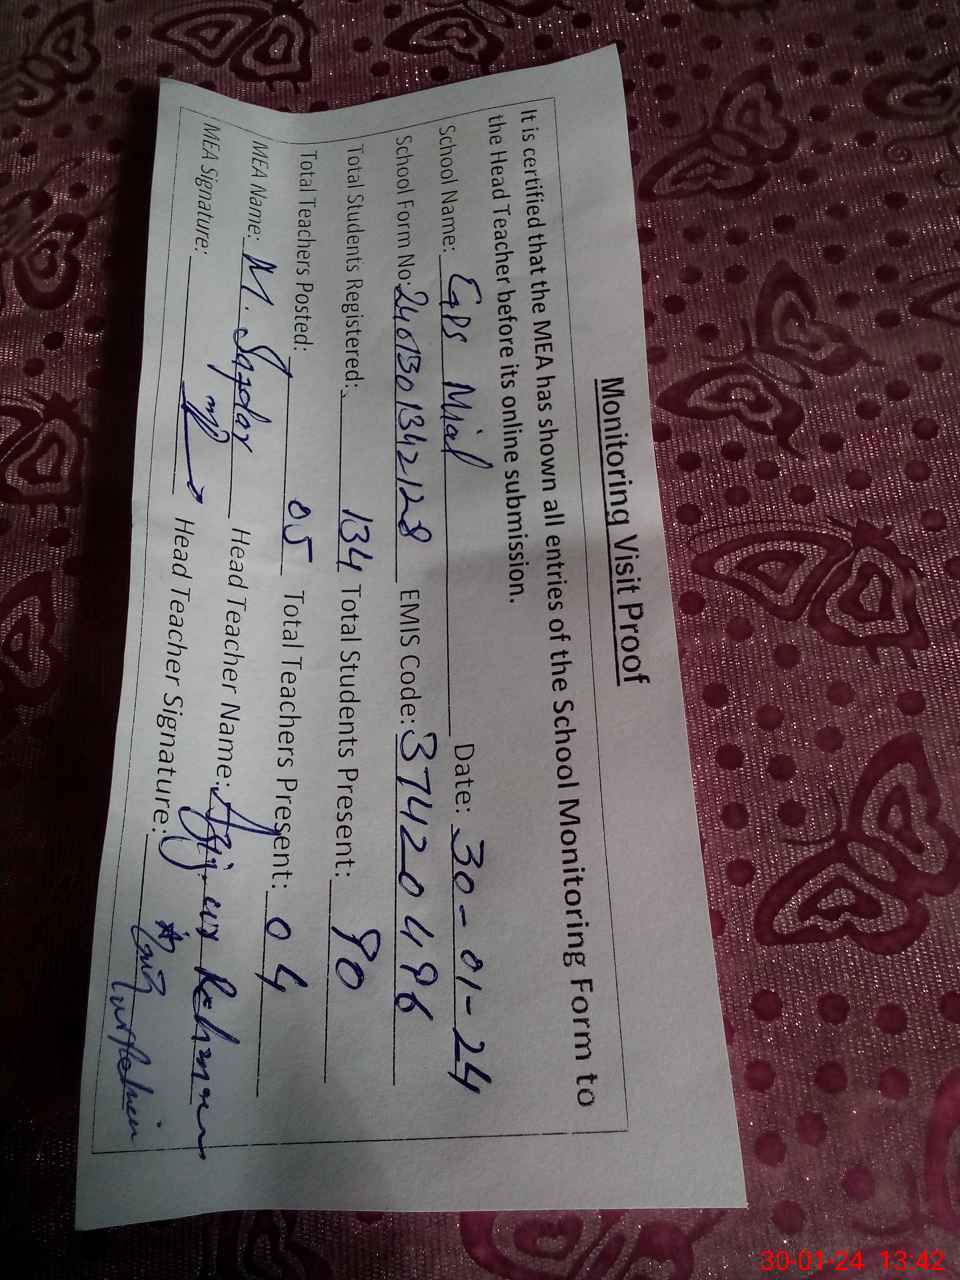 Monitoring Visit Proof
It is certified that the MEA has shown all entries of the School Monitoring Form to
the Head Teacher before its online submission.
School Name: GPS Mial Date: 30-01-24
School Form No: 2401301342128 EMIS Code: 37420496
Total Students Registered: 134 Total Students Present: 90
Total Teachers Posted: 05 Total Teachers Present: 04
MEA Name: M. Safdar Head Teacher Name: Aziz-ur Rehman
MEA Signature: Head Teacher Signature:
30-01-24 13:42